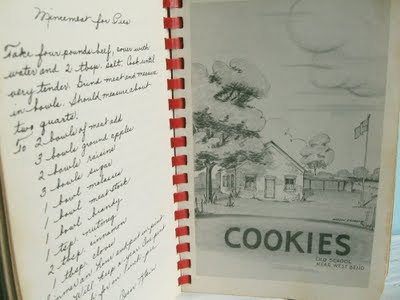 Mincemeat for Pies
Take four pounds beef, cover with
water and 2 tbsp. salt. Cook until
very tender. Grind meat and measure
in bowls. Should measure about
two quarts.
To 2 bowls of meat add
3 bowls ground apples
2 bowls raisins
3 bowls sugar
1 bowl molasses
1 bowl meat stock
1 bowl brandy
1 tsp. nutmeg
2 tbsp. cinnamon
1 tbsp. cloves
COOKIES
OLD SCHOOL
NEAR WEST BEND